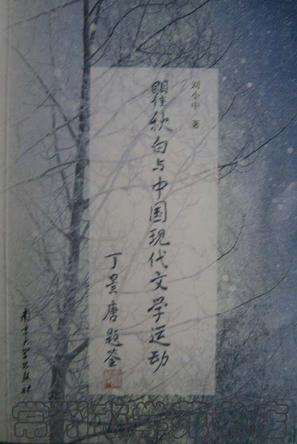 刘小中 著
瞿秋白与中国现代文学运动
丁景唐题签
南京大学出版社